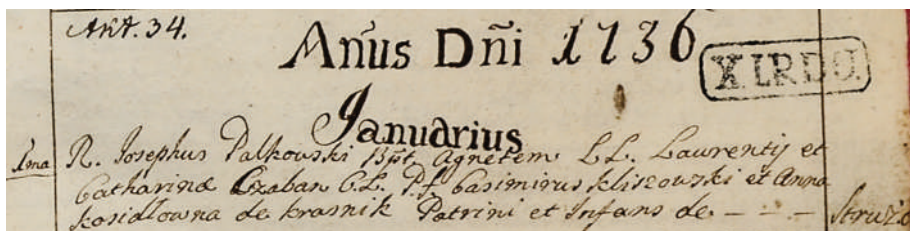 Akt. 34.
Añus Dñi 1736
X. I.R.D.U.
Januarius
1ma R. Josephus Palkowski Bpt. Agnetem L.L. Laurentij et
Catharinæ Czaban C.L. P.f. Casimirus Kliszowski et Anna
Kosidłowna de Krasnik Patrini et Infans de - - - Struża